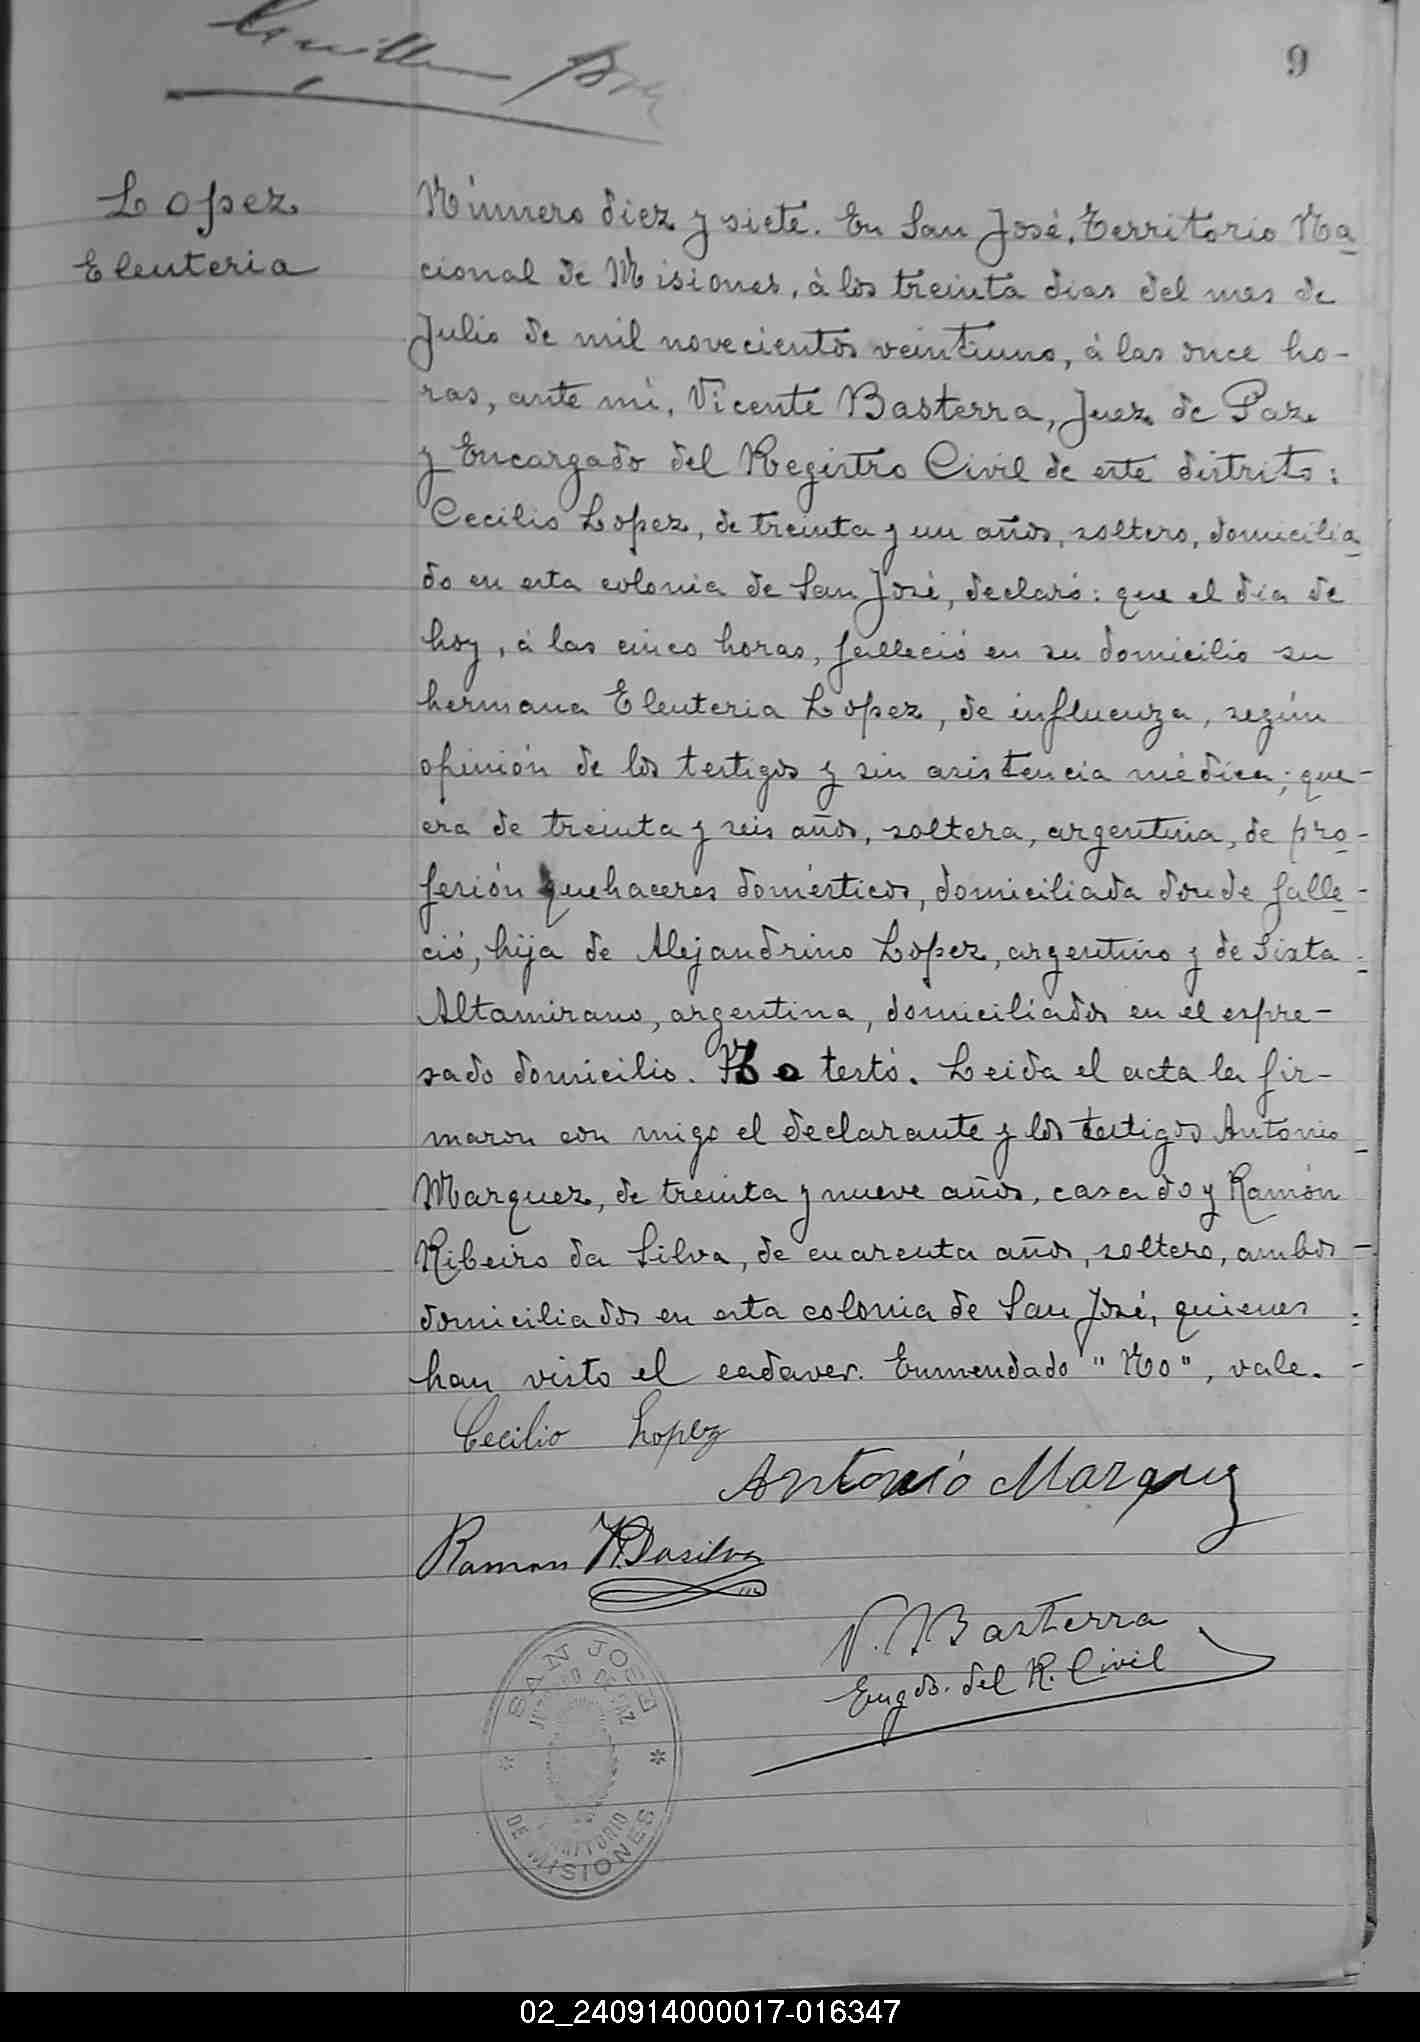 9
Lopez
Eleuteria
Número diez y siete. En San José, Territorio Na
cional de Misiones, à los treinta dias del mes de
Julio de mil novecientos veintiuno, á las once ho-
ras, ante mi, Vicente Basterra, Juez de Paz
y Encargado del Registro Civil de este distrito:
Cecilio Lopez, de treinta y un años, soltero, domicilia
do en esta colonia de San José, declaró: que el dia de
hoy, á las cinco horas, falleció en su domicilio su
hermana Eleuteria Lopez, de influenza, según
opinión de los testigos y sin asistencia médica; que-
era de treinta y seis años, soltera, argentina, de pro-
fesión quehaceres domésticos, domiciliada donde falle-
ció, hija de Alejandrino Lopez, argentino y de Sixta
Altamirano, argentina, domiciliados en el espre-
sado domicilio. No testó. Leida el acta la fir-
maron con migo el declarante y los testigos Antonio
Marquez, de treinta y nueve años, casado y Ramón
Ribeiro da Silva, de cuarenta años, soltero, ambos
domiciliados en esta colonia de San José, quienes
han visto el cadaver. Enmendado "No", vale.
Cecilio Lopez
Antonio Marquez
Ramon R. Dasilva
V. Basterra
Engdo. del R. Civil
SAN JOSE
JUZGADO DE PAZ
TERRITORIO
DE MISIONES
02_240914000017-016347